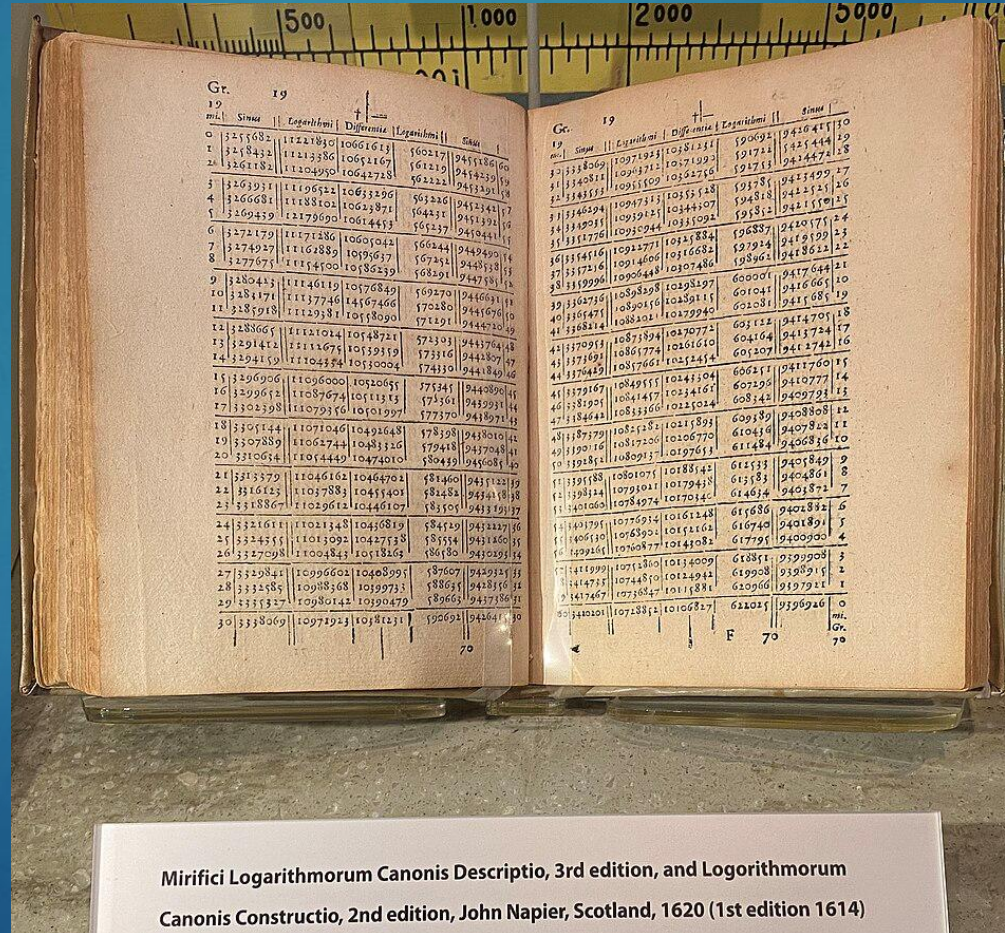 500 1000 2000 5000
Gr. 19
19
mi. Sinus Logarithmi Differentiæ Logarithmi Sinus
0 3255682 11221830 10661613 560217 9455186 60
1 3258432 11213386 10652167 561219 9454239 59
2 3261182 11204950 10642728 562222 9453291 58
3 3263931 11196522 10633296 563226 9452342 57
4 3266681 11188102 10623871 564231 9451392 56
5 3269430 11179690 10614453 565237 9450441 55
6 3272179 11171286 10605042 566244 9449490 54
7 3274927 11162889 10595637 567252 9448538 53
8 3277675 11154500 10586239 568261 9447585 52
9 3280423 11146119 10576849 569270 9446631 51
10 3283171 11137746 10567466 570280 9445676 50
11 3285918 11129381 10558090 571291 9444720 49
12 3288665 11121024 10548721 572303 9443764 48
13 3291412 11112675 10539359 573316 9442807 47
14 3294159 11104334 10530004 574330 9441849 46
15 3296906 11096000 10520655 575345 9440890 45
16 3299652 11087674 10511313 576361 9439931 44
17 3302398 11079356 10501997 577370 9438971 43
18 3305144 11071046 10492648 578398 9438010 42
19 3307889 11062744 10483326 579418 9437048 41
20 3310634 11054449 10474010 580439 9436085 40
21 3313379 11046162 10464702 581460 9435122 39
22 3316123 11037883 10455401 582482 9434158 38
23 3318867 11029612 10446107 583505 9433193 37
24 3321611 11021348 10436819 584529 9432227 36
25 3324355 11013092 10427538 585554 9431260 35
26 3327098 11004843 10518263 586580 9430293 34
27 3329841 10996602 10408995 587607 9429325 33
28 3332585 10988368 10399733 588635 9428356 32
29 3335327 10980142 10390479 589663 9427386 31
30 3338069 10971923 10381231 590692 9426415 30
70
Gr. 19
19
mi. Sinus Logarithmi Differentiæ Logarithmi Sinus
30 3338069 10971923 10381231 590692 9426415 30
31 3340811 10963712 10371990 591722 9425444 29
32 3343553 10955509 10362756 592753 9424472 28
33 3346294 10947313 10353528 593785 9423499 27
34 3349035 10939125 10344307 594818 9422525 26
35 3351776 10930944 10335092 595852 9421550 25
36 3354516 10922771 10325884 596887 9420575 24
37 3357256 10914606 10316682 597924 9419599 23
38 3359996 10906448 10307486 598962 9418622 22
39 3362736 10898298 10298297 600001 9417644 21
40 3365475 10890156 10289115 601041 9416665 20
41 3368214 10882021 10279940 602081 9415685 19
42 3370953 10873894 10270772 603122 9414705 18
43 3373691 10865774 10261610 604164 9413724 17
44 3376429 10857661 10252454 605207 9412742 16
45 3379167 10849555 10243304 606251 9411760 15
46 3381905 10841457 10234161 607296 9410777 14
47 3384642 10833366 10225024 608342 9409793 13
48 3387379 10825282 10215893 609389 9408808 12
49 3390116 10817206 10206770 610436 9407822 11
50 3392852 10809137 10197653 611484 9406836 10
51 3395588 10801075 10188542 612533 9405849 9
52 3398324 10793021 10179438 613583 9404861 8
53 3401060 10784974 10170340 614634 9403872 7
54 3403795 10776934 10161248 615686 9402882 6
55 3406530 10768902 10152162 616740 9401891 5
56 3409265 10760877 10143082 617795 9400900 4
57 3411999 10752860 10134009 618851 9399908 3
58 3414733 10744850 10124942 619908 9398915 2
59 3417467 10736847 10115881 620966 9397921 1
60 3420201 10728852 10106827 622025 9396926 0
mi.
Gr.
F 70 70
Mirifici Logarithmorum Canonis Descriptio, 3rd edition, and Logorithmorum
Canonis Constructio, 2nd edition, John Napier, Scotland, 1620 (1st edition 1614)